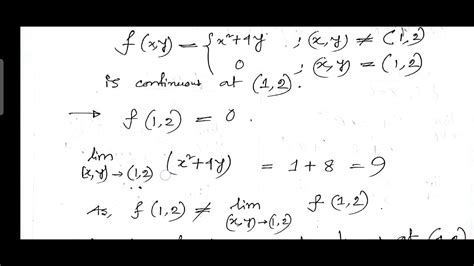 f(x,y) = { x²+4y ; (x,y) ≠ (1,2)
0 ; (x,y) = (1,2)
is continuous at (1,2).
→ f(1,2) = 0.
lim (x,y)→(1,2) (x²+4y) = 1+8 = 9
As, f(1,2) ≠ lim (x,y)→(1,2) f(1,2)
at (1,2)